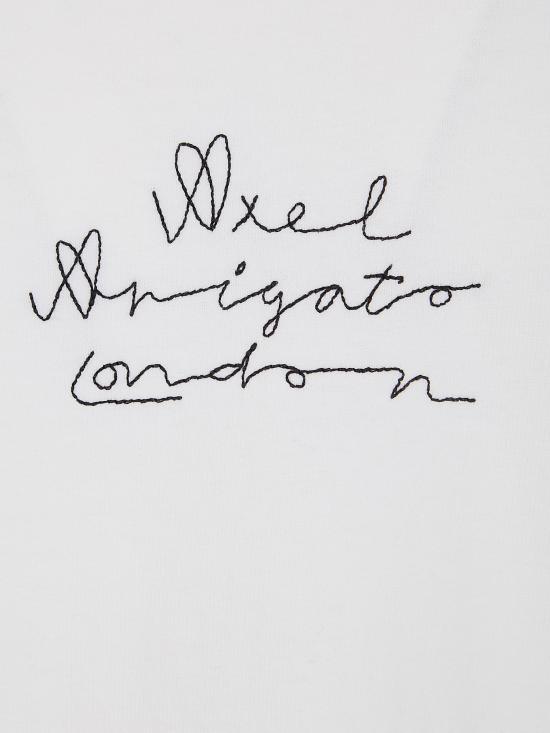 Axel
Arigato
London